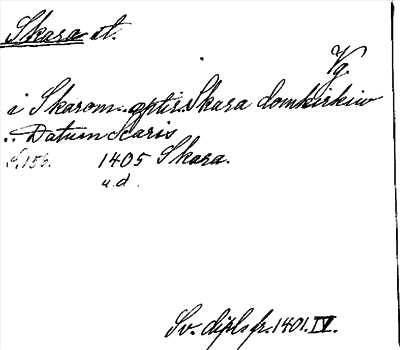 Skara st.
Vg.
i Skarom. eptir Skara domkirkiw
.. Datum Scaris
S. 156. 1405 Skara.
u.d.
Sv. dipl. fr. 1401. IV.